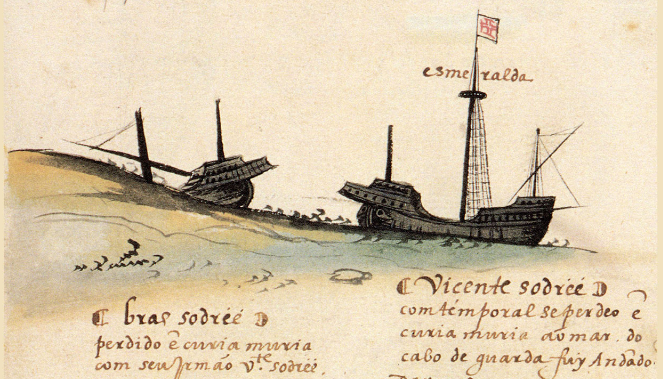 esmeralda
bras sodréé
perdido ẽ curia muria
com seu Jrmão v.te sodréé
Vicente sodréé
com témporal se perdeo ẽ
curia muria ao mar do
cabo de guarda fuy Andãdo